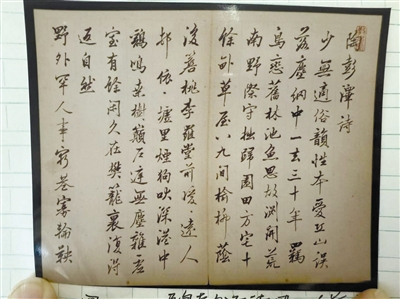 陶彭澤詩
少無適俗韻性本愛丘山误
落塵網中一去三十年羈
鳥戀舊林池魚思故渊開荒
南野際守拙歸園田方宅十
餘畝草屋八九間榆柳蔭
後簷桃李羅堂前暧〻遠人
邨依〻墟里煙狗吠深巷中
鷄鳴桑樹顛户庭無塵雜虚
室有餘闲久在樊籠裏復得
返自然
野外罕人事窮巷寡輪鞅